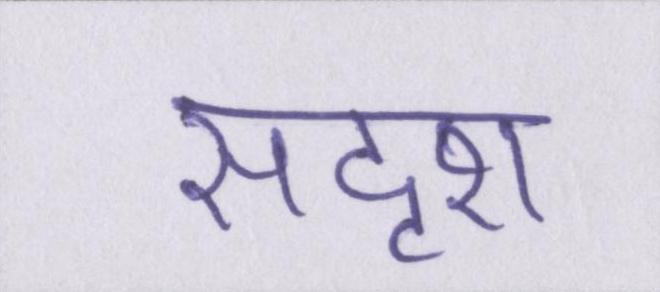 सदृश